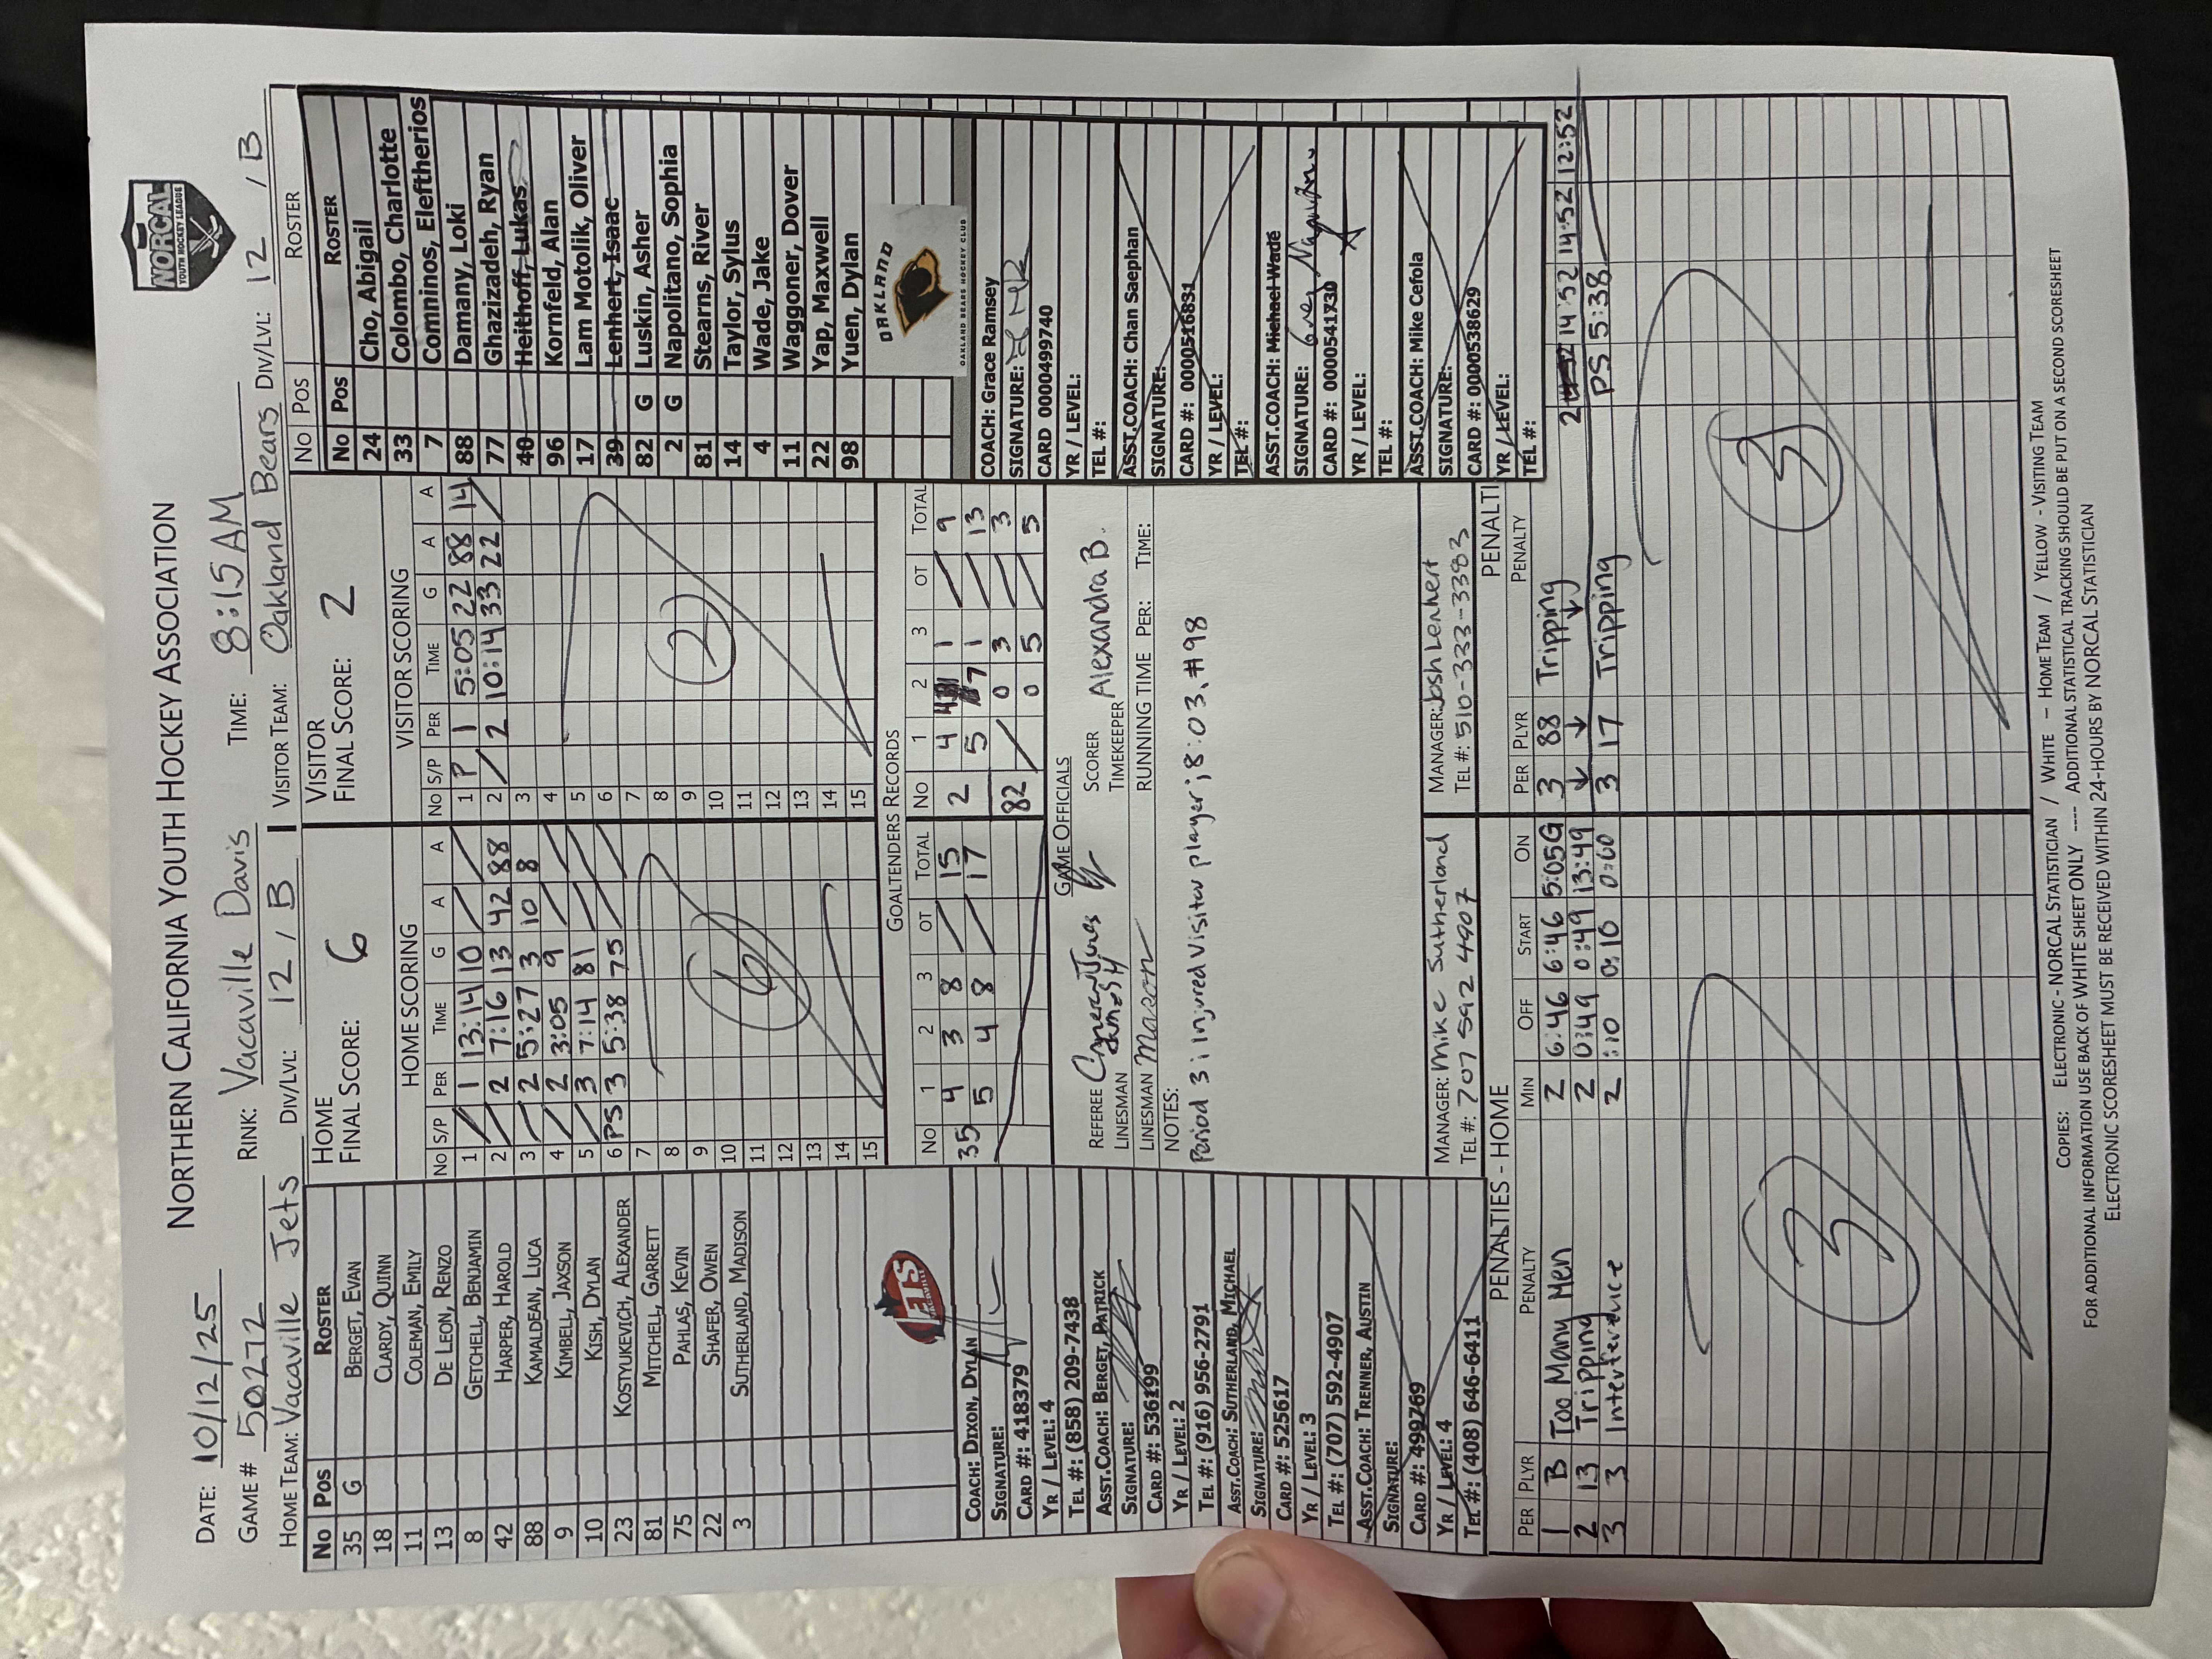 NORTHERN CALIFORNIA YOUTH HOCKEY ASSOCIATION
NORCAL
YOUTH HOCKEY LEAGUE
DATE: 10/12/25
GAME # 50272 RINK: Vacaville Davis TIME: 8:15 AM
HOME TEAM: Vacaville Jets DIV/LVL: 12 / B VISITOR TEAM: Oakland Bears DIV/LVL: 12 / B
No Pos ROSTER
35 G BERGET, EVAN
18 CLARDY, QUINN
11 COLEMAN, EMILY
13 DE LEON, RENZO
8 GETCHELL, BENJAMIN
42 HARPER, HAROLD
88 KAMALDEAN, LUCA
9 KIMBELL, JAXSON
10 KISH, DYLAN
23 KOSTYUKEVICH, ALEXANDER
81 MITCHELL, GARRETT
75 PAHLAS, KEVIN
22 SHAFER, OWEN
3 SUTHERLAND, MADISON
JETS
VACAVILLE
COACH: DIXON, DYLAN
SIGNATURE:
CARD #: 418379
YR / LEVEL: 4
TEL #: (858) 209-7438
ASST.COACH: BERGET, PATRICK
SIGNATURE:
CARD #: 536199
YR / LEVEL: 2
TEL #: (916) 956-2791
ASST.COACH: SUTHERLAND, MICHAEL
SIGNATURE:
CARD #: 525617
YR / LEVEL: 3
TEL #: (707) 592-4907
ASST.COACH: TRENNER, AUSTIN
SIGNATURE:
CARD #: 499769
YR / LEVEL: 4
TEL #: (408) 646-6411
HOME
FINAL SCORE: 6
HOME SCORING
No S/P PER TIME G A A
1 / 1 13:14 10 / /
2 / 2 7:16 13 42 88
3 / 2 5:27 3 10 8
4 / 2 3:05 9 / /
5 / 3 7:14 81 / /
6 PS 3 5:38 75 / /
7
8
9
10
11
12
13
14
15
6
VISITOR
FINAL SCORE: 2
VISITOR SCORING
No S/P PER TIME G A A
1 P 1 5:05 22 88 14
2 / 2 10:14 33 22 /
3
4
5
6
7
8
9
10
11
12
13
14
15
2
GOALTENDERS RECORDS
No 1 2 3 OT TOTAL No 1 2 3 OT TOTAL
35 4 3 8 / 15 2 4 4 1 / 9
5 4 8 / 17 5 7 1 / 13
82 / 0 3 / 3
/ 0 5 / 5
GAME OFFICIALS
REFEREE SCORER
LINESMAN TIMEKEEPER Alexandra B.
LINESMAN Mason RUNNING TIME PER: TIME:
NOTES:
Period 3: injured visitor player; 8:03, #98
MANAGER: Mike Sutherland
TEL #: 707 592 4907
MANAGER: Josh Lenhert
TEL #: 510-333-3383
NO POS ROSTER
No Pos ROSTER
24 Cho, Abigail
33 Colombo, Charlotte
7 Comninos, Eleftherios
88 Damany, Loki
77 Ghazizadeh, Ryan
40 Heithoff, Lukas
96 Kornfeld, Alan
17 Lam Motolik, Oliver
39 Lenhert, Isaac
82 G Luskin, Asher
2 G Napolitano, Sophia
81 Stearns, River
14 Taylor, Sylus
4 Wade, Jake
11 Waggoner, Dover
22 Yap, Maxwell
98 Yuen, Dylan
OAKLAND
OAKLAND BEARS HOCKEY CLUB
COACH: Grace Ramsey
SIGNATURE:
CARD 0000499740
YR / LEVEL:
TEL #:
ASST.COACH: Chan Saephan
SIGNATURE:
CARD #: 0000516831
YR / LEVEL:
TEL #:
ASST.COACH: Michael Wade
SIGNATURE:
CARD #: 0000541730
YR / LEVEL:
TEL #:
ASST.COACH: Mike Cefola
SIGNATURE:
CARD #: 0000538629
YR / LEVEL:
TEL #:
PENALTIES - HOME
PER PLYR PENALTY MIN OFF START ON
1 B Too Many Men 2 6:46 6:46 5:05G
2 13 Tripping 2 0:49 0:49 13:49
3 3 Interference 2 :10 0:10 0:00
3
PENALTI
PER PLYR PENALTY
3 88 Tripping 2 14:52 14:52 12:52
↓ ↓ ↓
3 17 Tripping PS 5:38
3
COPIES: ELECTRONIC - NORCAL STATISTICIAN / WHITE – HOME TEAM / YELLOW - VISITING TEAM
FOR ADDITIONAL INFORMATION USE BACK OF WHITE SHEET ONLY ---- ADDITIONAL STATISTICAL TRACKING SHOULD BE PUT ON A SECOND SCORESHEET
ELECTRONIC SCORESHEET MUST BE RECEIVED WITHIN 24-HOURS BY NORCAL STATISTICIAN